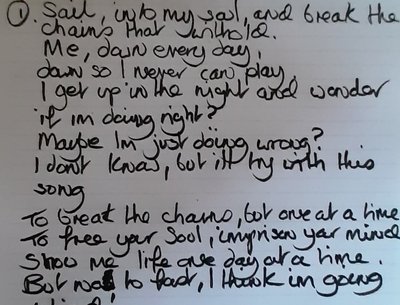 ① Sail, into my soul, and break the
chains that withold.
Me, down every day,
down so I never can play,
I get up in the night and wonder
if im doing right?
Maybe Im just doing wrong?
I dont know, but ill try with this
song
To break the chains, but one at a time
To free your soul, imprison your mind
Show me life one day at a time.
But not to fast, I think im going